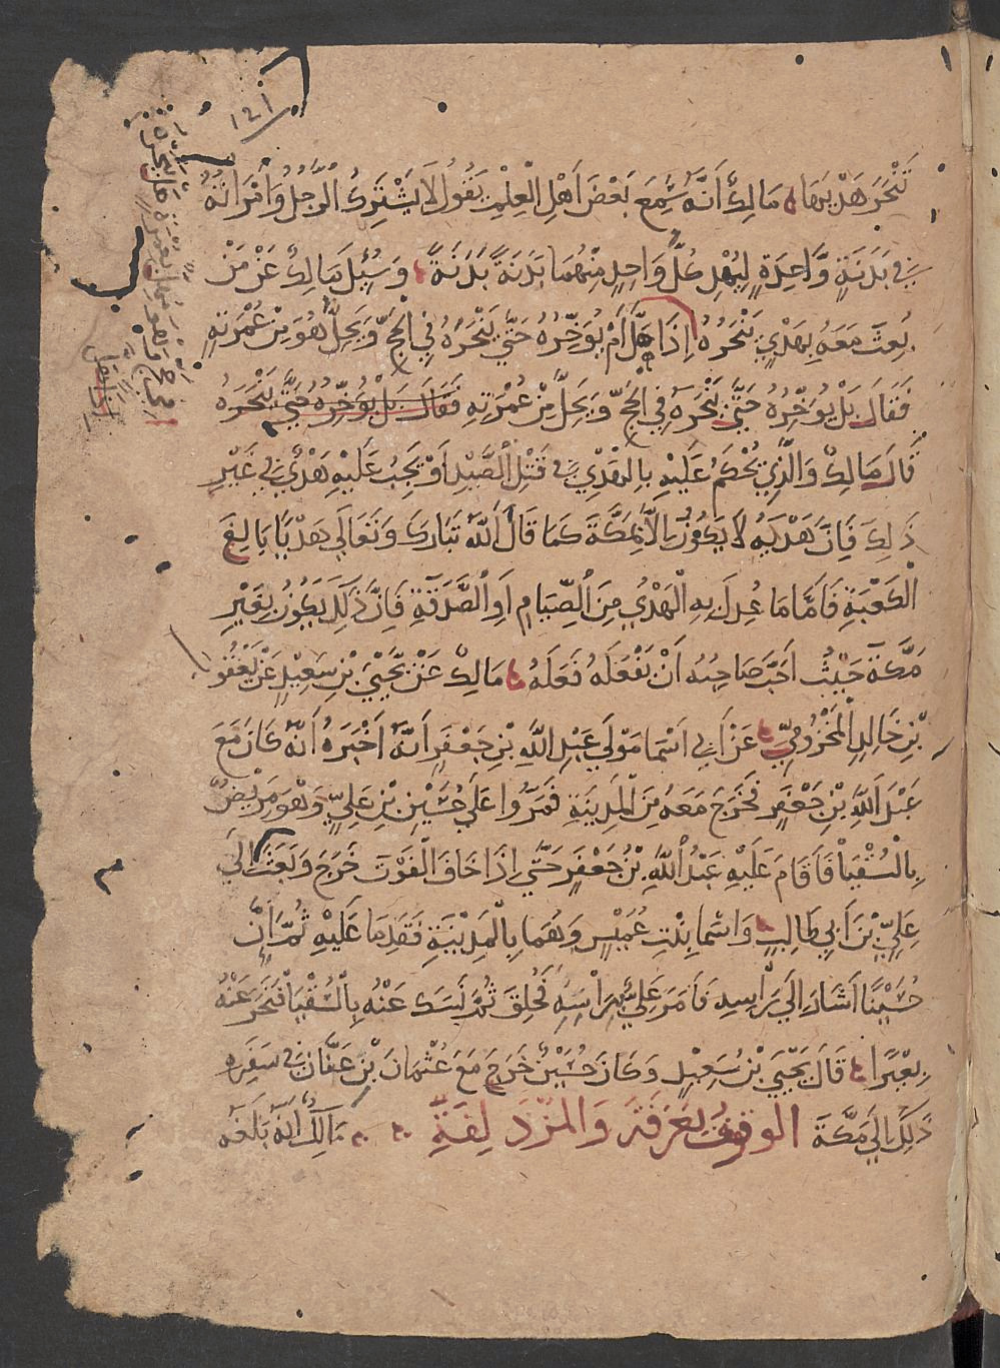 ١٢١
تَنْحَرَ هَدْيَهَا مَالِكٌ أَنَّهُ سَمِعَ بَعْضَ أَهْلِ الْعِلْمِ يَقُولُ لَا يَشْتَرِكُ الرَّجُلُ وَامْرَأَتُهُ
فِي بَدَنَةٍ وَاحِدَةٍ لِيُهْدِ كُلُّ وَاحِدٍ مِنْهُمَا بَدَنَةً بَدَنَةً وَسُئِلَ مَالِكٌ عَنْ مَنْ
بُعِثَ مَعَهُ بِهَدْيٍ يَنْحَرُهُ إِذَا هَلَّ أَمْ يُؤَخِّرُهُ حَتَّى يَنْحَرَهُ فِي الْحَجِّ وَيَحِلُّ هُوَ مِنْ عُمْرَتِهِ
فَقَالَ بَلْ يُؤَخِّرُهُ حَتَّى يَنْحَرَهُ فِي الْحَجِّ وَيَحِلُّ مِنْ عُمْرَتِهِ فَقَالَ بَلْ يُؤَخِّرُهُ حَتَّى يَنْحَرَهُ
قَالَ مَالِكٌ وَالَّذِي يُحْكَمُ عَلَيْهِ بِالْهَدْيِ فِي قَتْلِ الصَّيْدِ أَوْ يَجِبُ عَلَيْهِ هَدْيٌ فِي غَيْرِ
ذَلِكَ فَإِنَّ هَدْيَهُ لَا يَكُونُ إِلَّا بِمَكَّةَ كَمَا قَالَ اللَّهُ تَبَارَكَ وَتَعَالَى هَدْيًا بَالِغَ
الْكَعْبَةِ فَأَمَّا مَا عُدِلَ بِهِ الْهَدْيُ مِنَ الصِّيَامِ أَوِ الصَّدَقَةِ فَإِنَّ ذَلِكَ يَكُونُ بِغَيْرِ
مَكَّةَ حَيْثُ أَحَبَّ صَاحِبُهُ أَنْ يَفْعَلَهُ فَعَلَهُ مَالِكٌ عَنْ يَحْيَى بْنِ سَعِيدٍ عَنْ يَعْقُوبَ
بْنِ خَالِدٍ الْمَخْزُومِيِّ عَنْ أَبِي أَسْمَا مَوْلَى عَبْدِ اللَّهِ بْنِ جَعْفَرٍ أَنَّهُ أَخْبَرَهُ أَنَّهُ كَانَ مَعَ
عَبْدِ اللَّهِ بْنِ جَعْفَرٍ فَخَرَجَ مَعَهُ مِنَ الْمَدِينَةِ فَمَرُّوا عَلَى حُسَيْنِ بْنِ عَلِيٍّ وَهُوَ مَرِيضٌ
بِالسُّقْيَا فَأَقَامَ عَلَيْهِ عَبْدُ اللَّهِ بْنُ جَعْفَرٍ حَتَّى إِذَا خَافَ الْفَوْتَ خَرَجَ وَبَعَثَ إِلَى
عَلِيِّ بْنِ أَبِي طَالِبٍ وَأَسْمَا بِنْتِ عُمَيْسٍ وَهُمَا بِالْمَدِينَةِ فَقَدِمَا عَلَيْهِ ثُمَّ إِنَّ
حُسَيْنًا أَشَارَ إِلَى رَأْسِهِ فَأَمَرَ عَلِيٌّ بِرَأْسِهِ فَحُلِقَ ثُمَّ نَسَكَ عَنْهُ بِالسُّقْيَا فَنَحَرَ عَنْهُ
بَعِيرًا قَالَ يَحْيَى بْنُ سَعِيدٍ وَكَانَ حُسَيْنٌ خَرَجَ مَعَ عُثْمَانَ بْنِ عَفَّانَ فِي سَفَرِهِ
ذَلِكَ إِلَى مَكَّةَ الْوُقُوفُ بِعَرَفَةَ وَالْمُزْدَلِفَةِ مَالِكٌ أَنَّهُ بَلَغَهُ